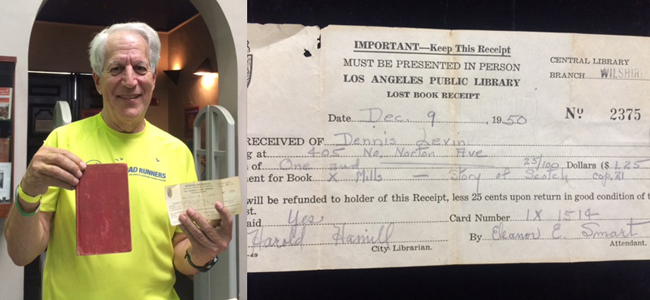 AD RUNNERS
IMPORTANT—Keep This Receipt
MUST BE PRESENTED IN PERSON
LOS ANGELES PUBLIC LIBRARY
LOST BOOK RECEIPT
CENTRAL LIBRARY
BRANCH WILSHIRE
Date Dec. 9 1950
No 2375
RECEIVED OF Dennis Levin
ng at 405 No. Norton Ave
s of One and 25/100 Dollars ($ 1.25
ment for Book X Mills — Story of Scotch cop. 21
will be refunded to holder of this Receipt, less 25 cents upon return in good condition of
st.
aid Yes Card Number 1X 1514
Harold Hamill By Eleanor E. Smart
City Librarian. Attendant.
-49